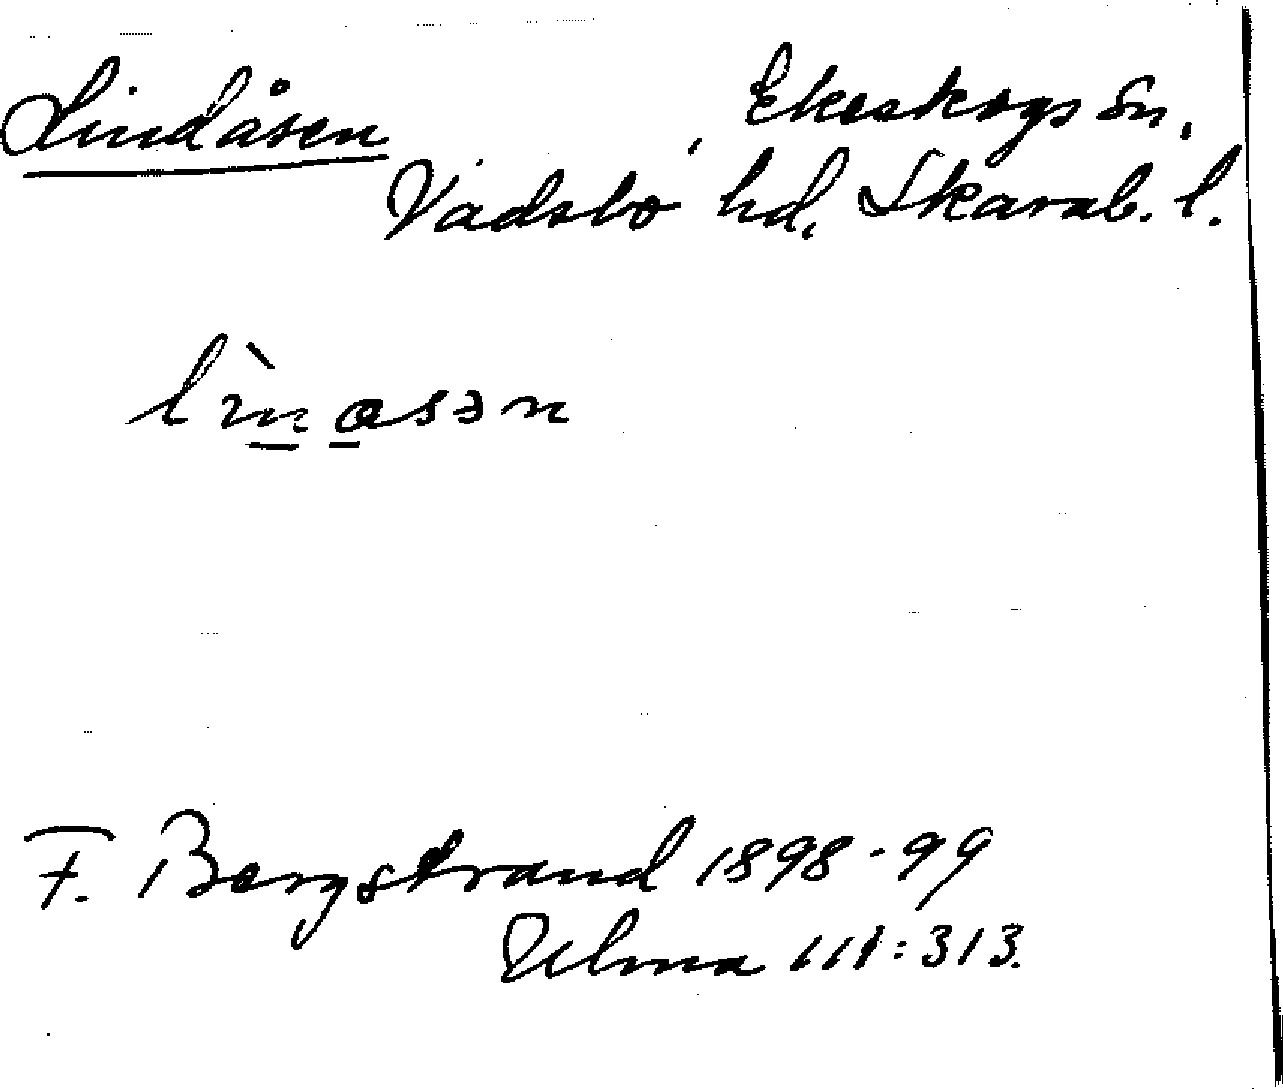 Lindåsen , Ekeskogs Sn.
Vadsbo hd, Skarab. l.
lìn̲a̲sən
F. Bergstrand 1898-99
Ulma 111:313.